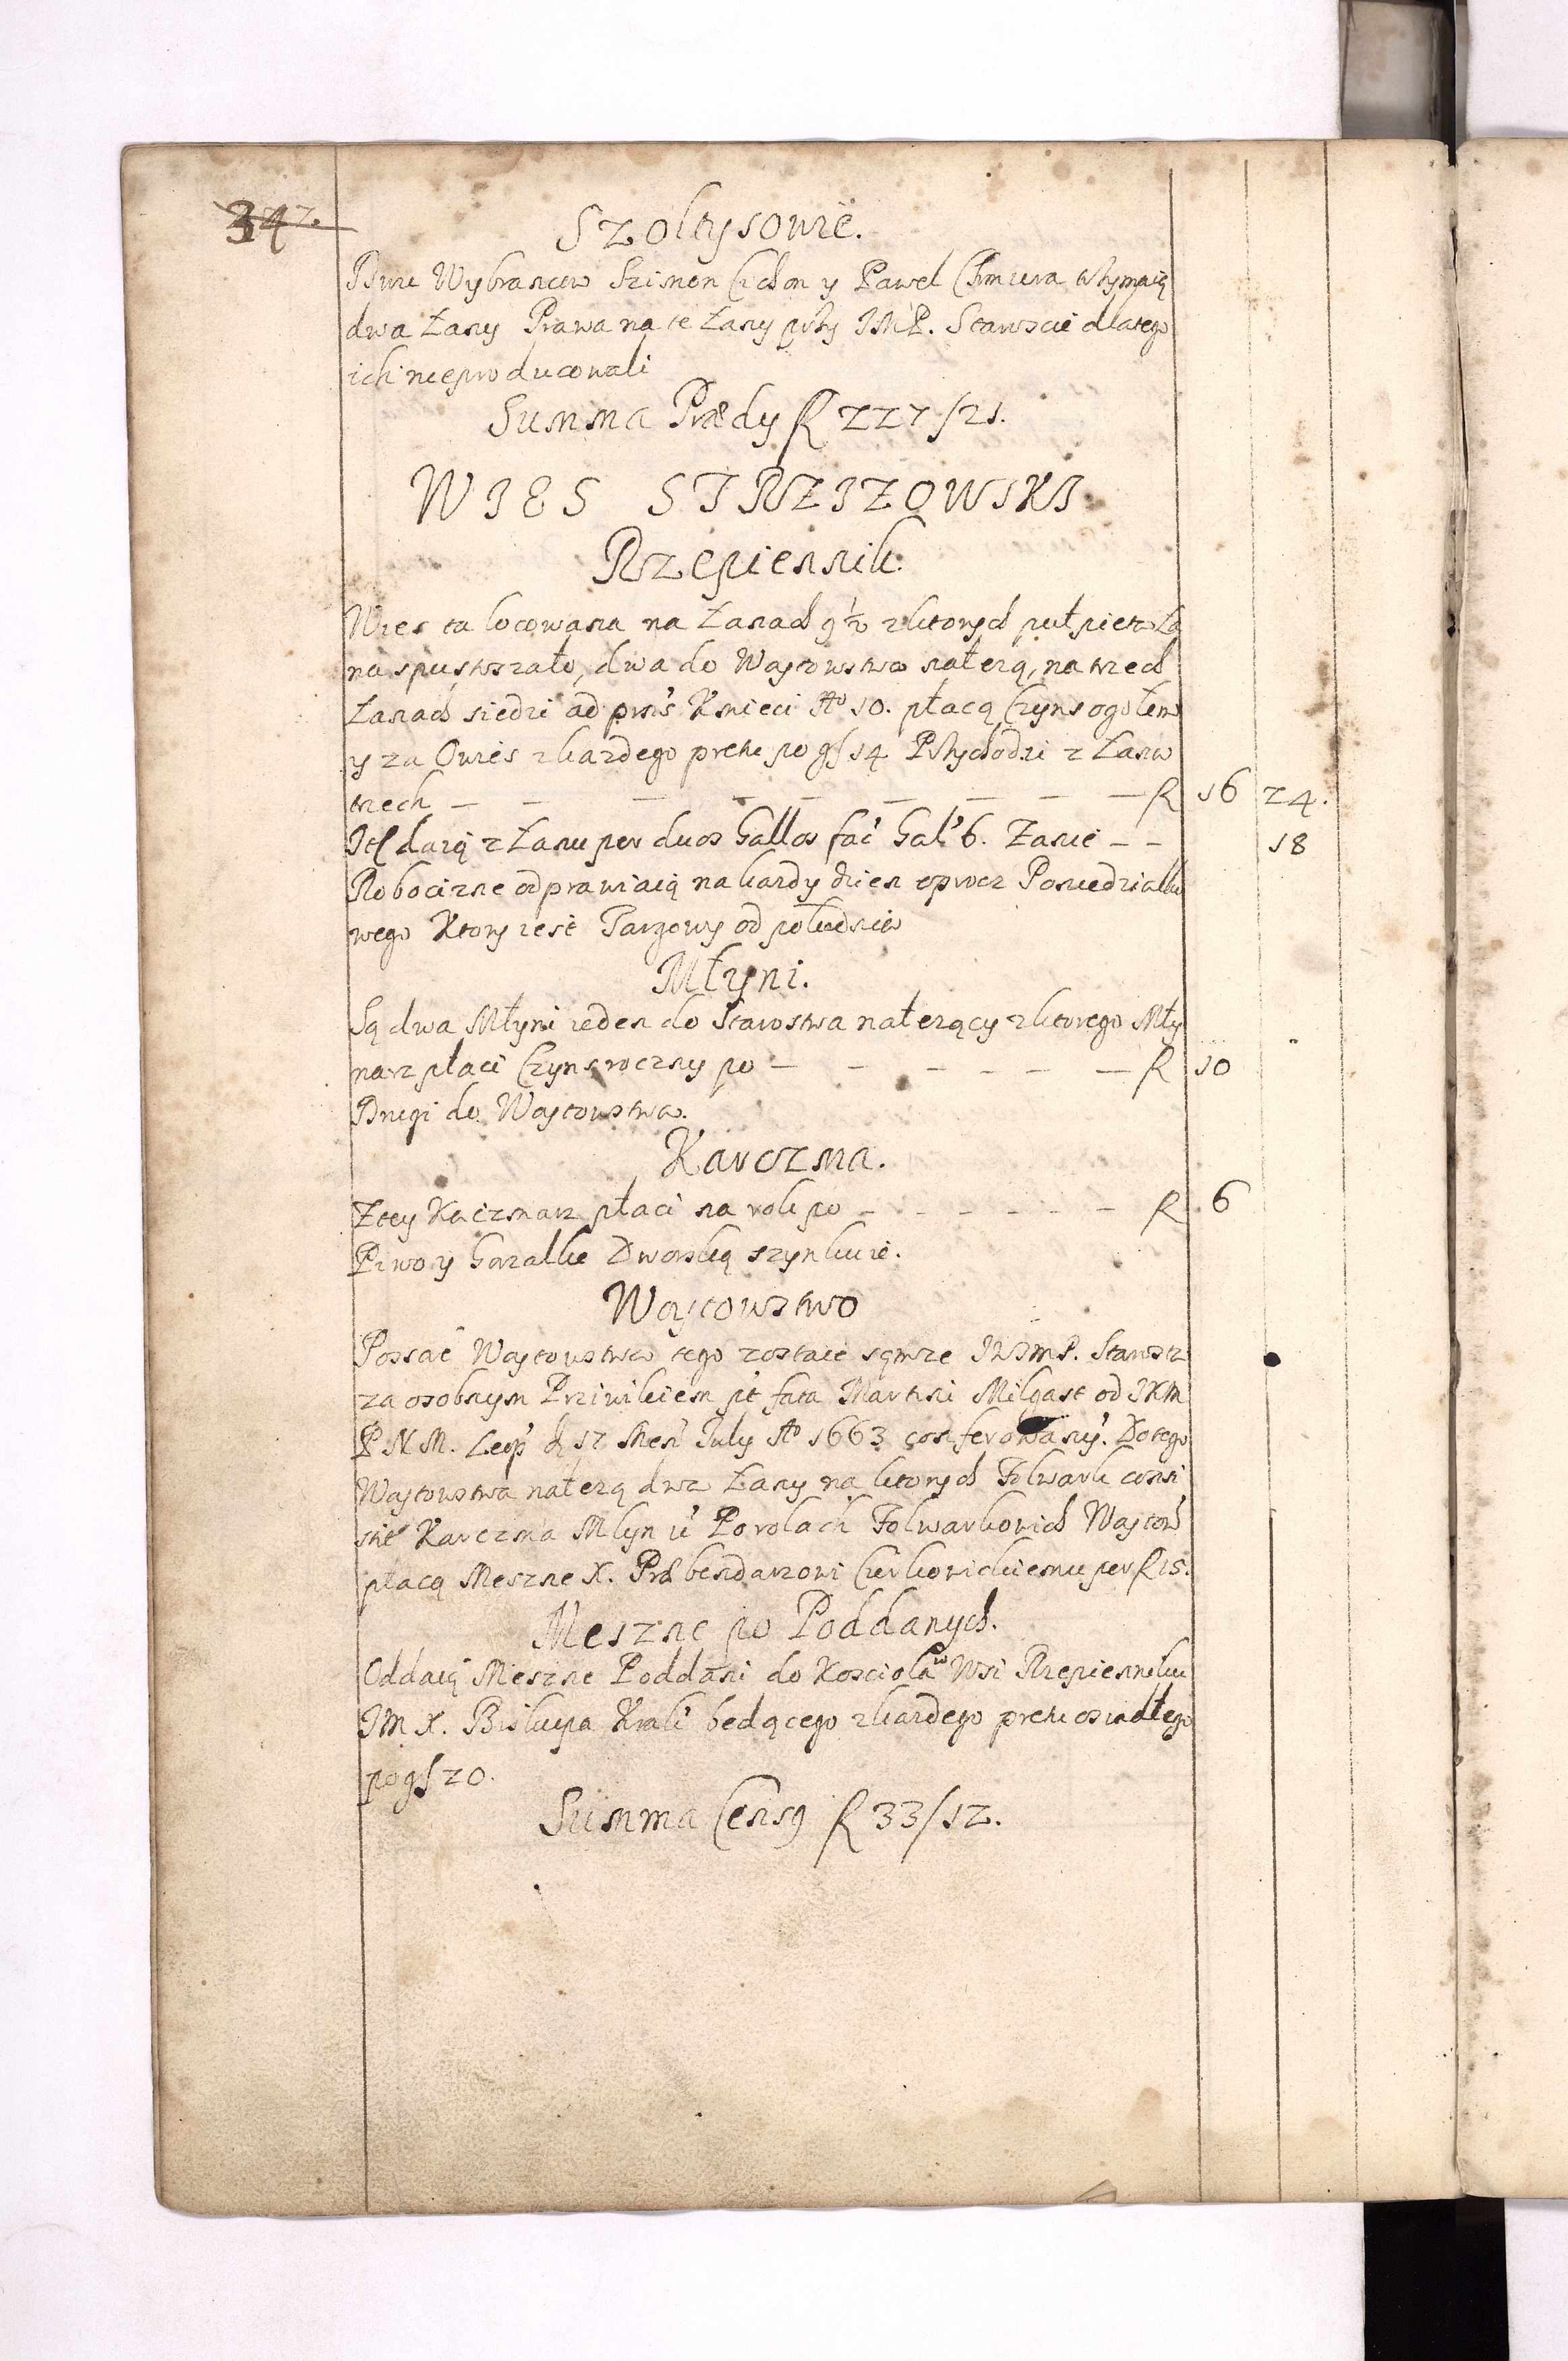 34
Szoltysowie.
Dwu Wybrancow Szimon Cichon y Pawel Chmura trzymaią
dwa Łany Prawa na te Łany przy JMP. Staroscie dlatego
ich nieproducowali
Summa Prædy R 227/21.
WIES STRZIZOWSKI
Rzepiennik.
Wies ta locowana na Łanach 9½ z ktorych puł pięta Ła
nu spustoszało, dwa do Waytowstwa należą, na trzech
Łanach siedzi ad pns Kmieci No 10. płacą Czyns ogołem
y za Owies z kazdego pręta po gſ 14 Przychodzi z Łanow
trzech — — — — — — — — R 16 24.
Itſ daią z Łanu per duos Gallos fac Gal 6. Zanie - - 18
Robocizne odprawiaią na kazdy dzien oprocz Poniedziałko
wego Ktory iest Targowy od południa
Młyni.
Są dwa Młyni ieden do Starostwa należący z ktorego Mły
narz płaci Czyns roczny po — — — — — — R 10
Drugi do Waytowstwa.
Karczma.
Z tey Kaczmarz płaci na rok po - - - - - - R 6
Piwo y Gorzalke Dworską szynkuie.
Woytowstwo
Possać Waytowstwa tego zostaie sąmże JWJmP. Starosta
za osobnym Priwilieiem pt fata Martini Milgast od JKM
PNM. Leop d 12 Mens July Ao 1663 conferowany. Do tego
Waytowstwa należą dwa Łany na ktorych Folwark consi
stit Karczma Mlyn it Po rolach Folwarkowich Waytow
płacą Meszne X. Præbendarzowi Czerkowickiemu per R 15.
Meszne po Poddanych.
Oddaią Meszne Poddani do Kosciola w Wsi Rzepienniku
JM X. Biskupa Krak będącego z kazdego pręta osiadłego
po gſ 20.
Summa Censg R 33/12.